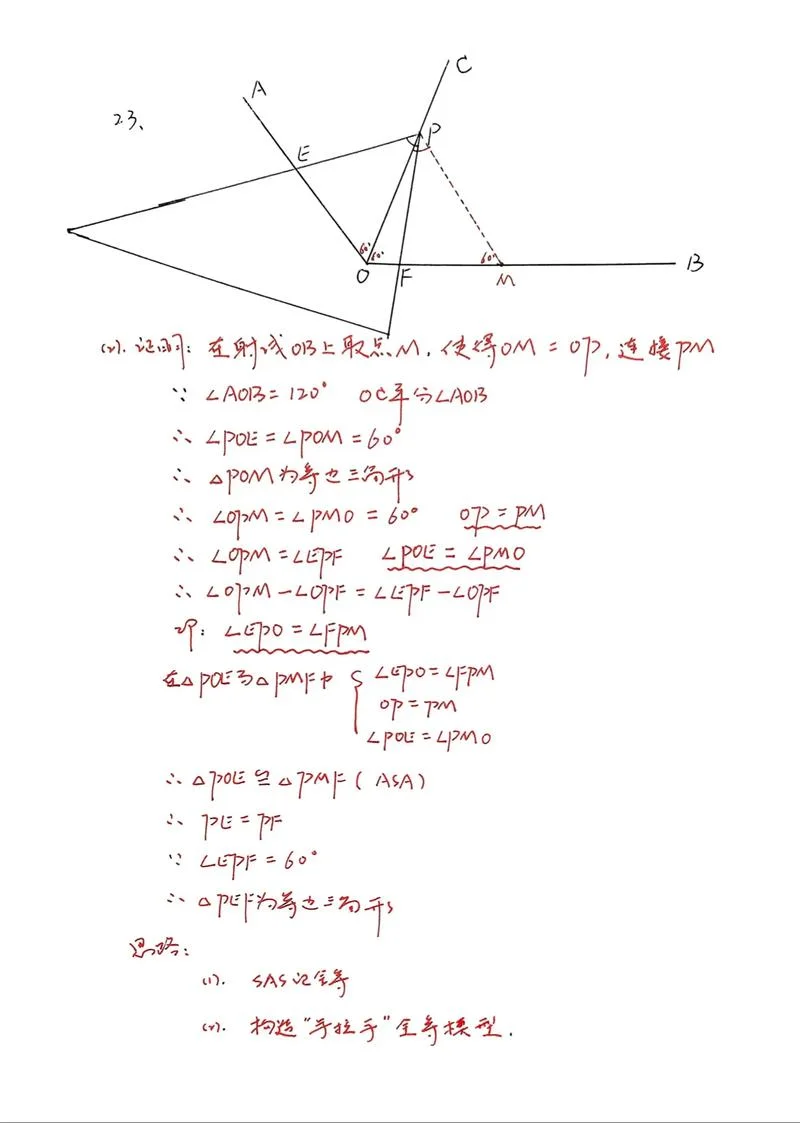 23、
A
C
P
E
60° 60°
60°
O
F
M
B
(2). 证明: 在射线OB上取点M, 使得OM = OP, 连接PM
∵ ∠AOB = 120° OC平分∠AOB
∴ ∠POE = ∠POM = 60°
∴ △POM为等边三角形
∴ ∠OPM = ∠PMO = 60° OP = PM
∴ ∠OPM = ∠EPF ∠POE = ∠PMO
∴ ∠OPM - ∠OPF = ∠EPF - ∠OPF
即: ∠EPO = ∠FPM
在△POE与△PMF中 { ∠EPO = ∠FPM
OP = PM
∠POE = ∠PMO
∴ △POE ≌ △PMF ( ASA )
∴ PE = PF
∵ ∠EPF = 60°
∴ △PEF为等边三角形
思路:
(1). SAS证全等
(2). 构造"手拉手"全等模型.